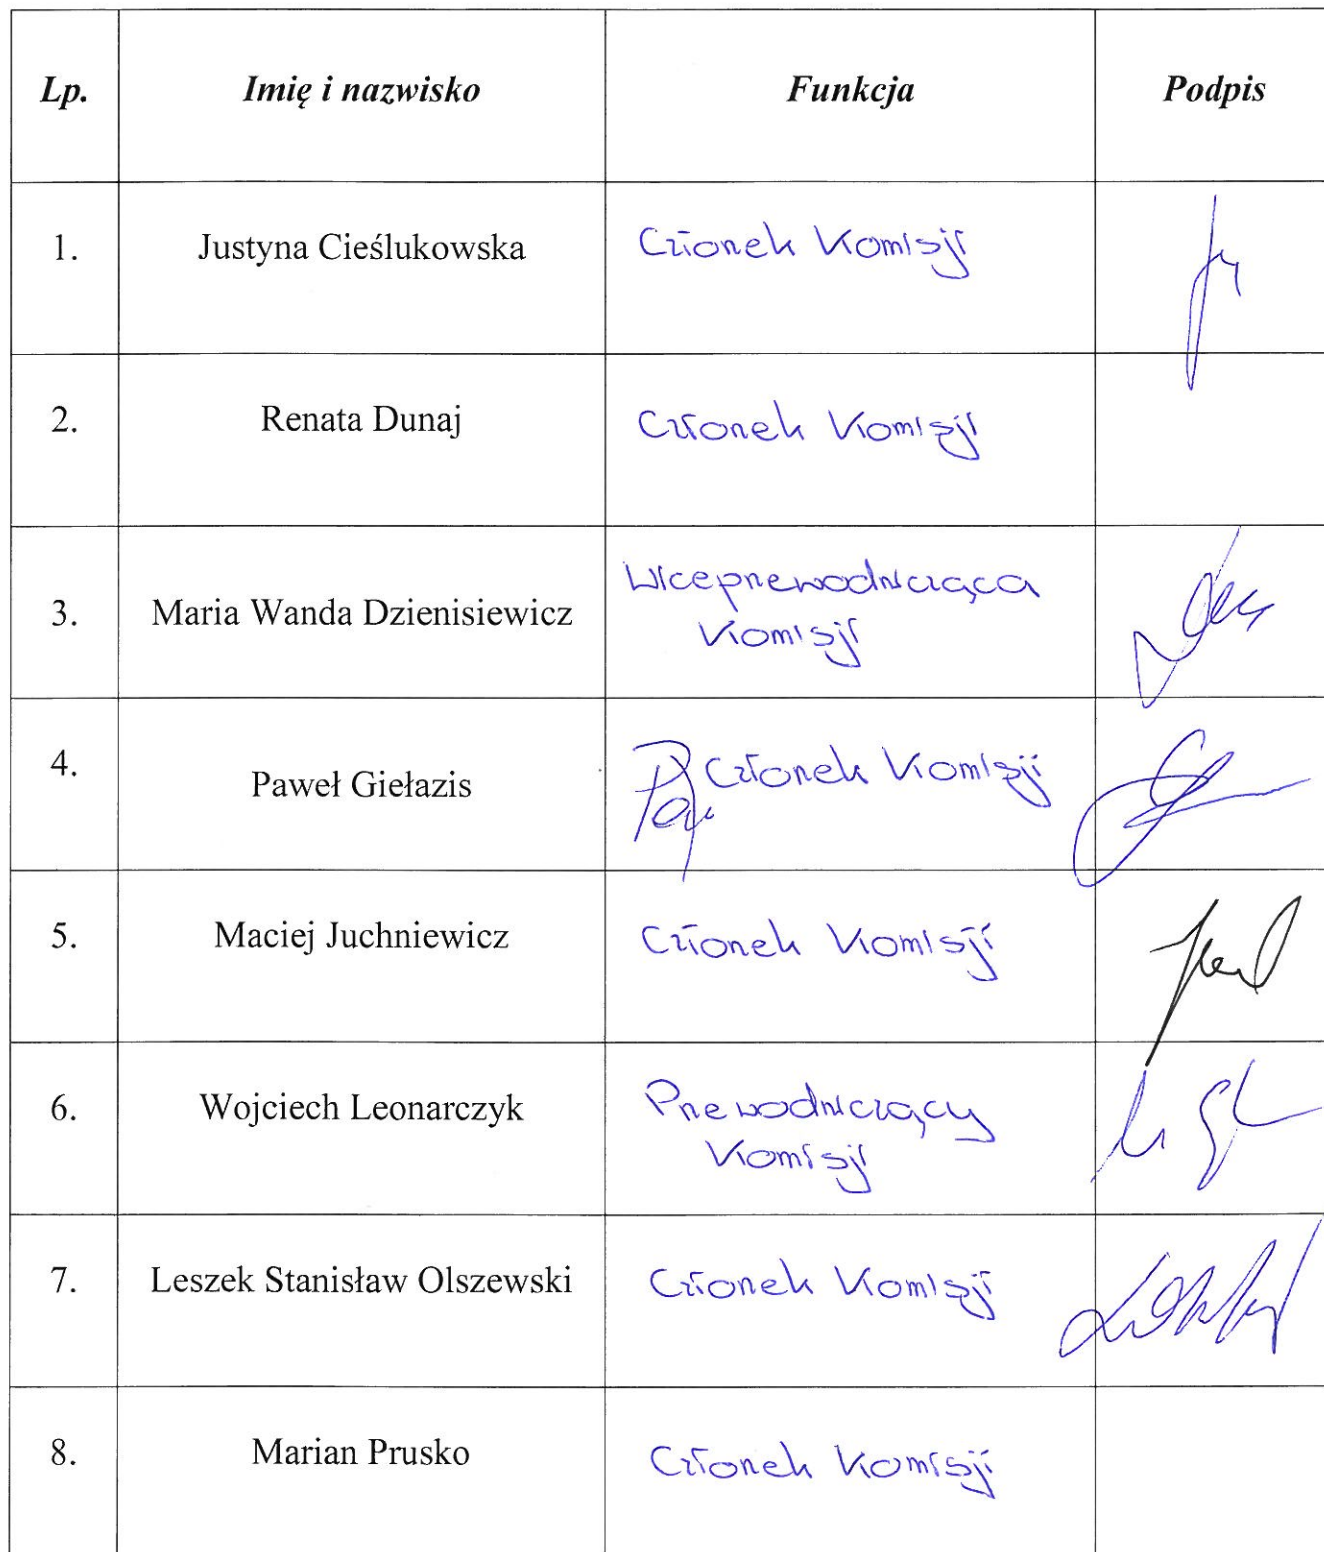 Lp. Imię i nazwisko Funkcja Podpis
1. Justyna Cieślukowska Członek Komisji
2. Renata Dunaj Członek Komisji
3. Maria Wanda Dzienisiewicz Wiceprzewodnicząca
Komisji
4. Paweł Giełazis Członek Komisji
5. Maciej Juchniewicz Członek Komisji
6. Wojciech Leonarczyk Przewodniczący
Komisji
7. Leszek Stanisław Olszewski Członek Komisji
8. Marian Prusko Członek Komisji